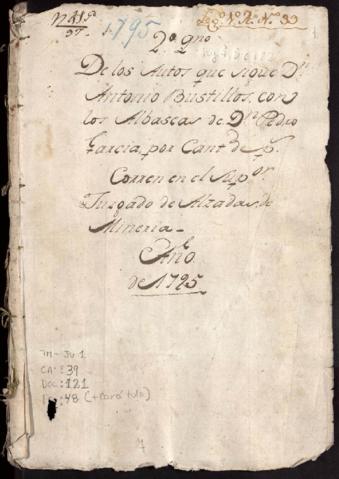 1795
2º qno.
De los Autos que sigue Dn.
Antonio Bustillos, con
los Albaseas de Dn. Pedro
Garcia, por Cantd. de ps.
Corren en el Supor.
Jusgado de Alzadas de
Mineria.
Año
de 1795
TM-JU 1
CA: 39
DOC: 121
48 (+ carátula)